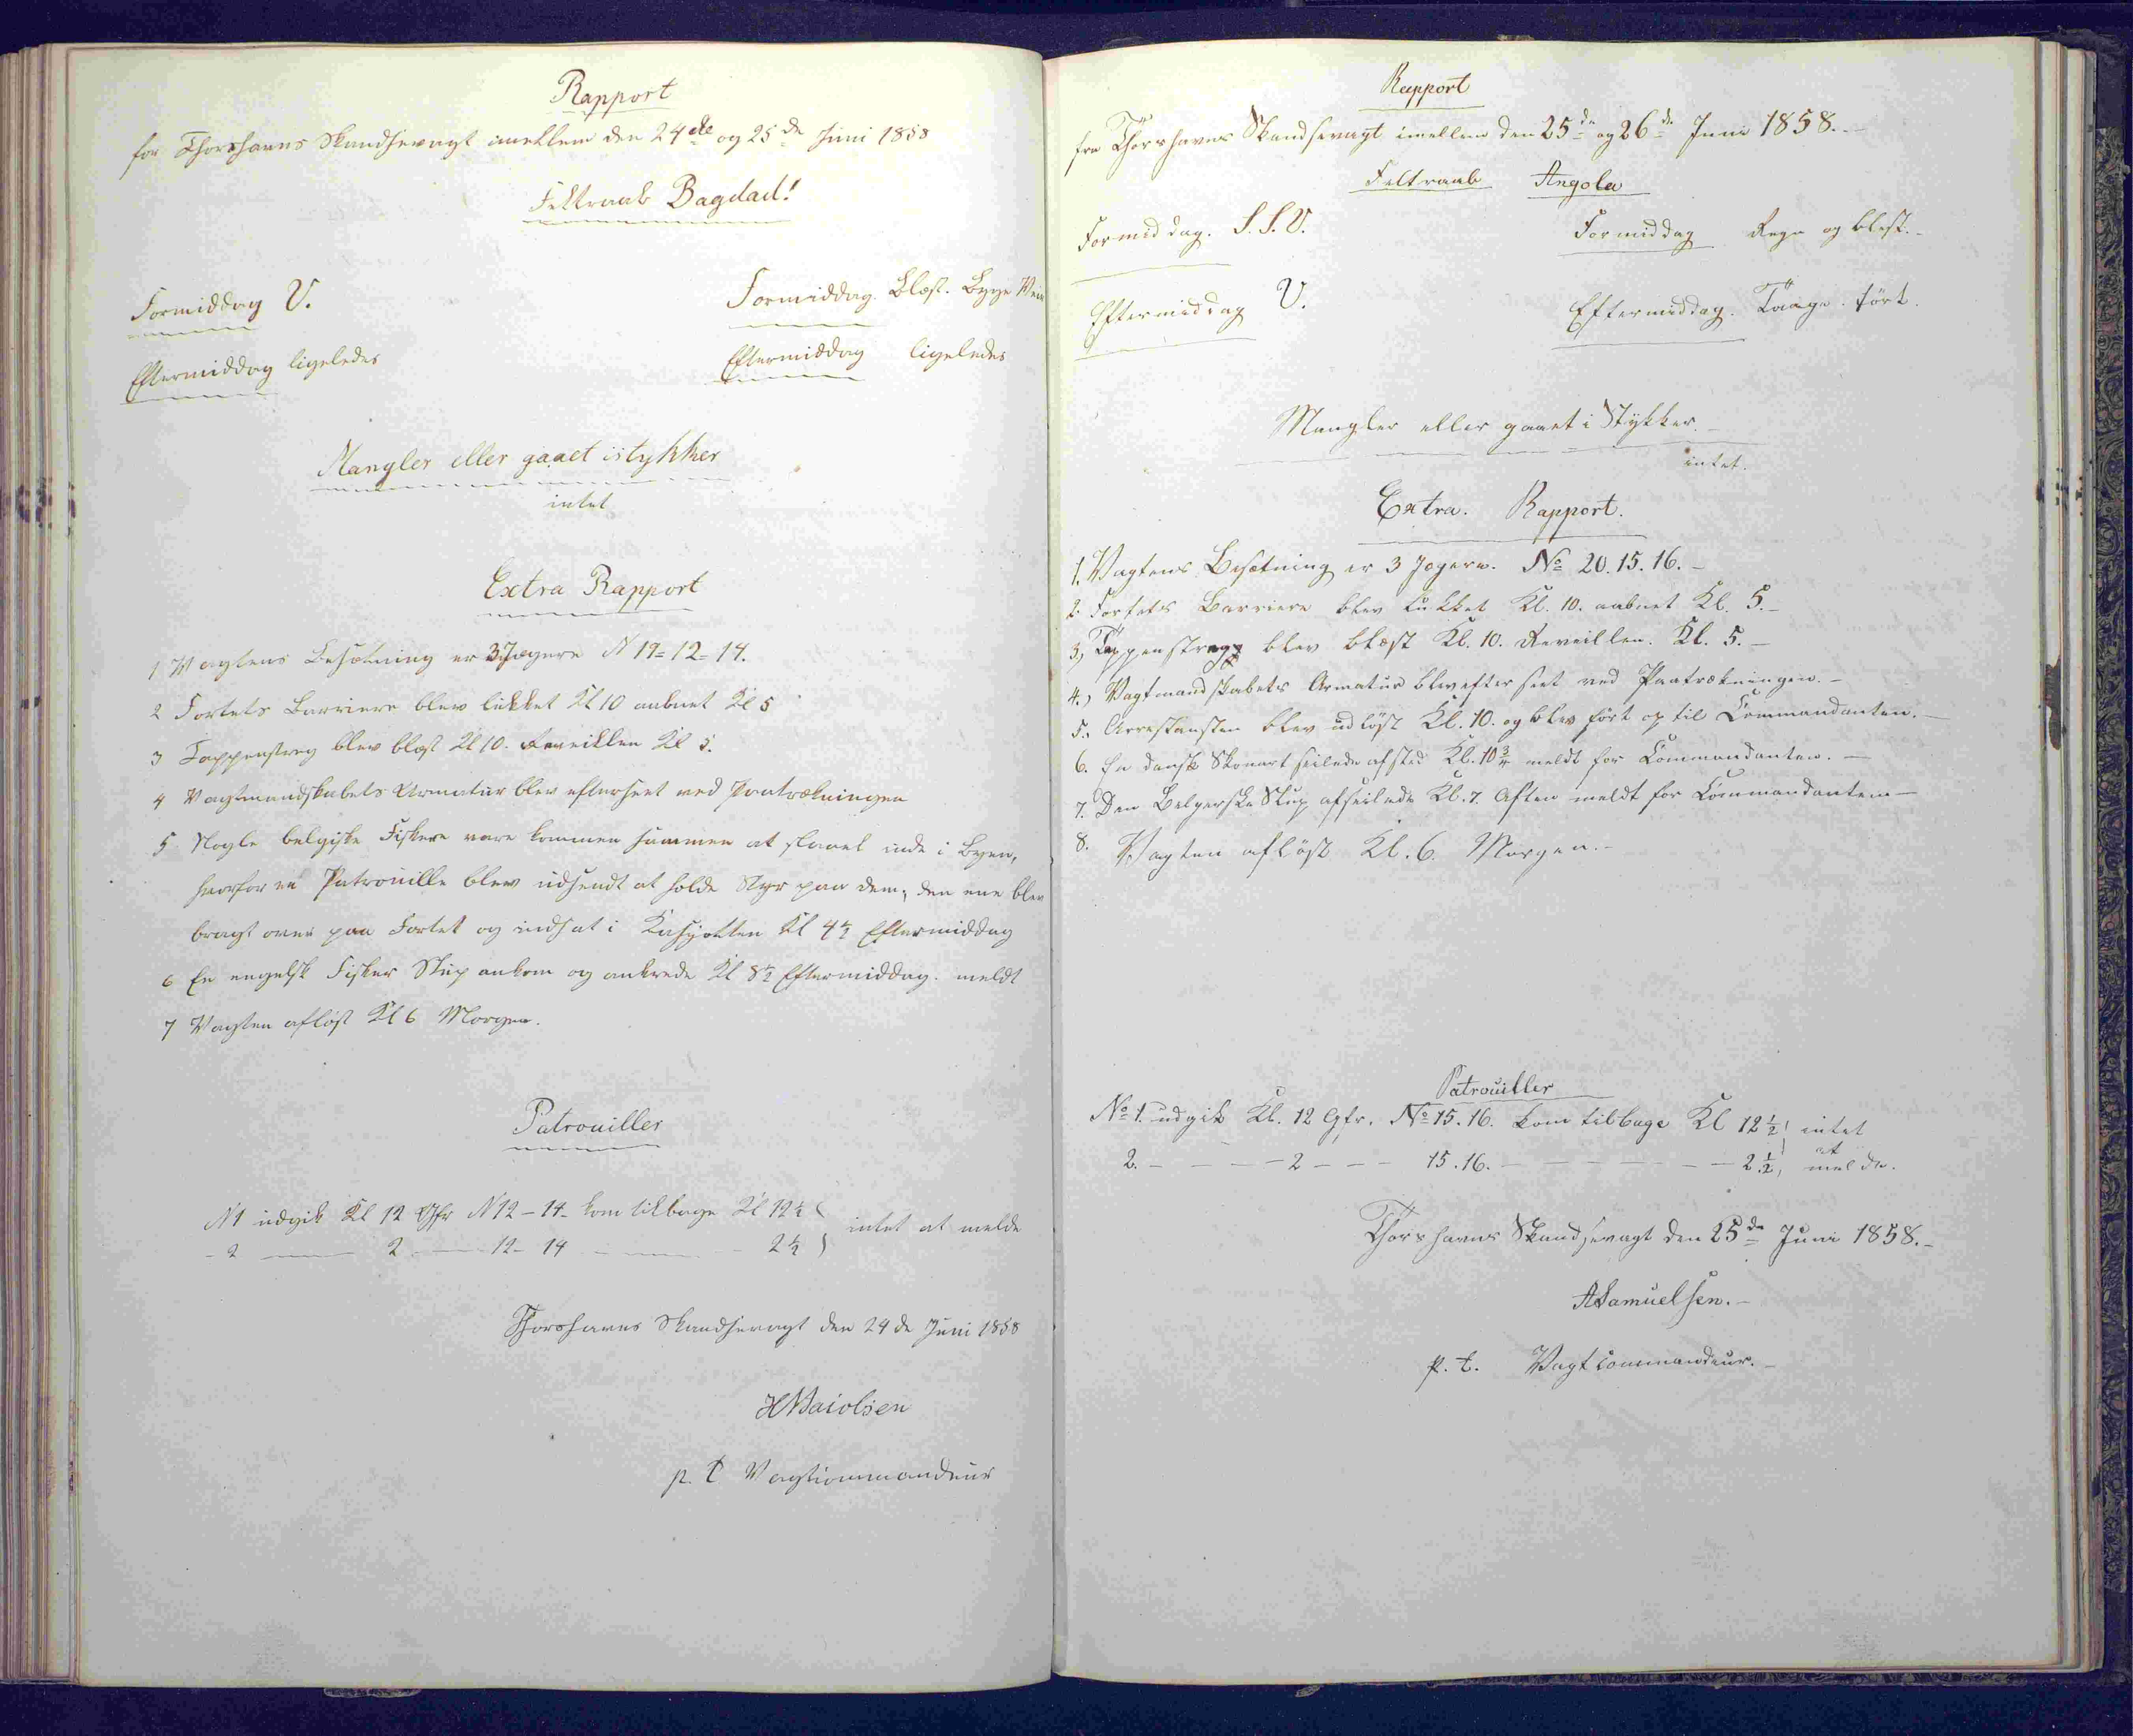 Rapport
for Thorshavns Skandsevagt imellem den 24de og 25de Juni 1858
Feltraab Bagdad!
Formiddag V.
Formiddag. Blæst. Byge Veir
Eftermiddag ligeledes
Eftermiddag ligeledes
Mangler eller gaaet istykker
intet
Extra Rapport
1 Vagtens Besætning er 3 Jægere N 19-12-14.
2 Fortets Barriere blev lukket Kl 10 aabnet Kl 5
3 Tappenstreg blev blæst Kl 10. Reveillen Kl 5.
4 Vagtmandskabets Armatur blev efterseet ved Paatrækningen
5 Nogle belgiske Fiskere vare kommen sammen at slaael inde i Byen,
hvorfor en Patrouille blev udsendt at holde Styr paa dem, den ene blev
bragt over paa Fortet og indsat i Kasjotten Kl 4½ Eftermiddag
6 En engelsk Fisker Slup ankom og ankrede Kl 8½ Eftermiddag. meldt
7 Vagten afløst Kl 6 Morgen.
Patrouiller
N 1 udgik Kl 12 Gfr N 12-14 kom tilbage Kl 12½
intet at melde
- 2 — 2 — 12-14 — 2½
Thorshavns Skandsevagt den 24de Juni 1858
p. t Vagtcommandeur
Rapport
fra Thorshavns Skandsevagt imellem den 25de og 26de Juni 1858.-
Feltraab Angola
Formiddag. S.S.V.
Formiddag Regn og blæst.-
Eftermiddag V.
Eftermiddag. Taage. tört.
Mangler eller gaaet i Stykker.-
intet.
Extra. Rapport.
1. Vagtens Besætning er 3 Jægere. No 20. 15. 16.-
2. Fortets Barriere blev lukket Kl. 10. aabnet Kl. 5.-
3, Tappenstreg blev blæst Kl. 10. Reveillen. Kl. 5.-
4., Vagtmandskabets Armatur blev efter seet ved Paatrækningen.-
5., Arrestansten blev udlöst Kl. 10. og blev fört op til Commandanten.-
6. En dansk Skonart seilede afsted Kl. 10¾ meldt for Commandanten.-
7. Den Belgerske Slup afseilede Kl. 7. Aften meldt for Commandanten-
8. Vagten aflöst Kl. 6. Morgen.-
Patrouiller
No 1. udgik Kl. 12 Gfr. No 15. 16. kom tilbage Kl 12½ intet
at
2. - - - - 2 - - - 15. 16. - - - - - 2½, melde.
Thorshavns Skandsevagt den 25de Juni 1858.-
ASamuelsen.-
p. t. Vagtcommandeur.-